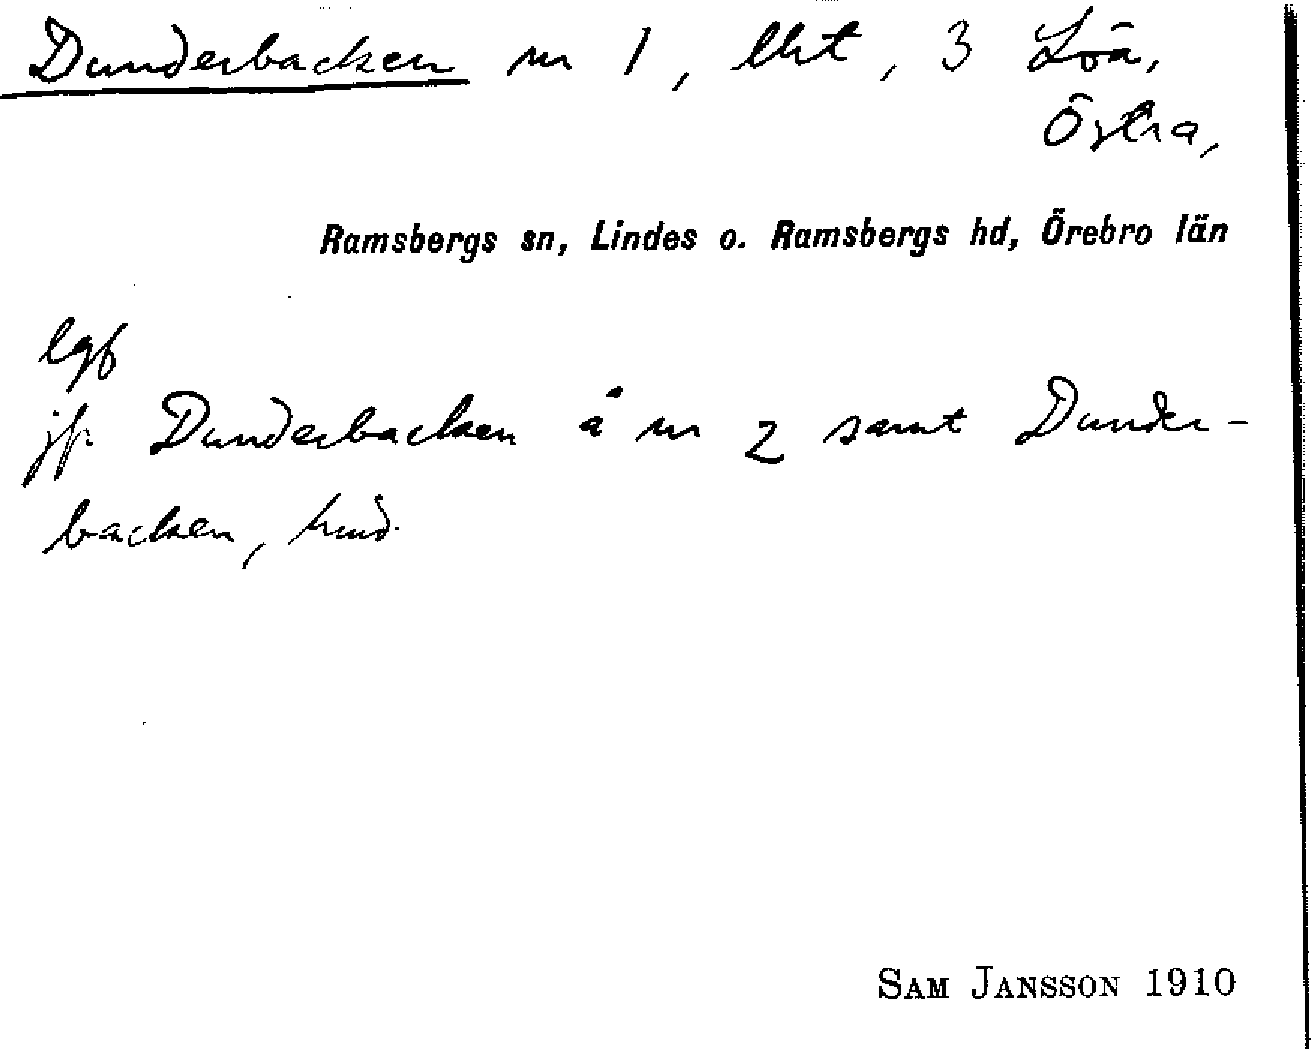 Dunderbacken nr 1, lht, 3 Löa,
Östra,
Ramsbergs sn, Lindes o. Ramsbergs hd, Örebro län
lgf
jfr Dunderbacken å nr 2 samt Dunder-
backen, hmd.
SAM JANSSON 1910